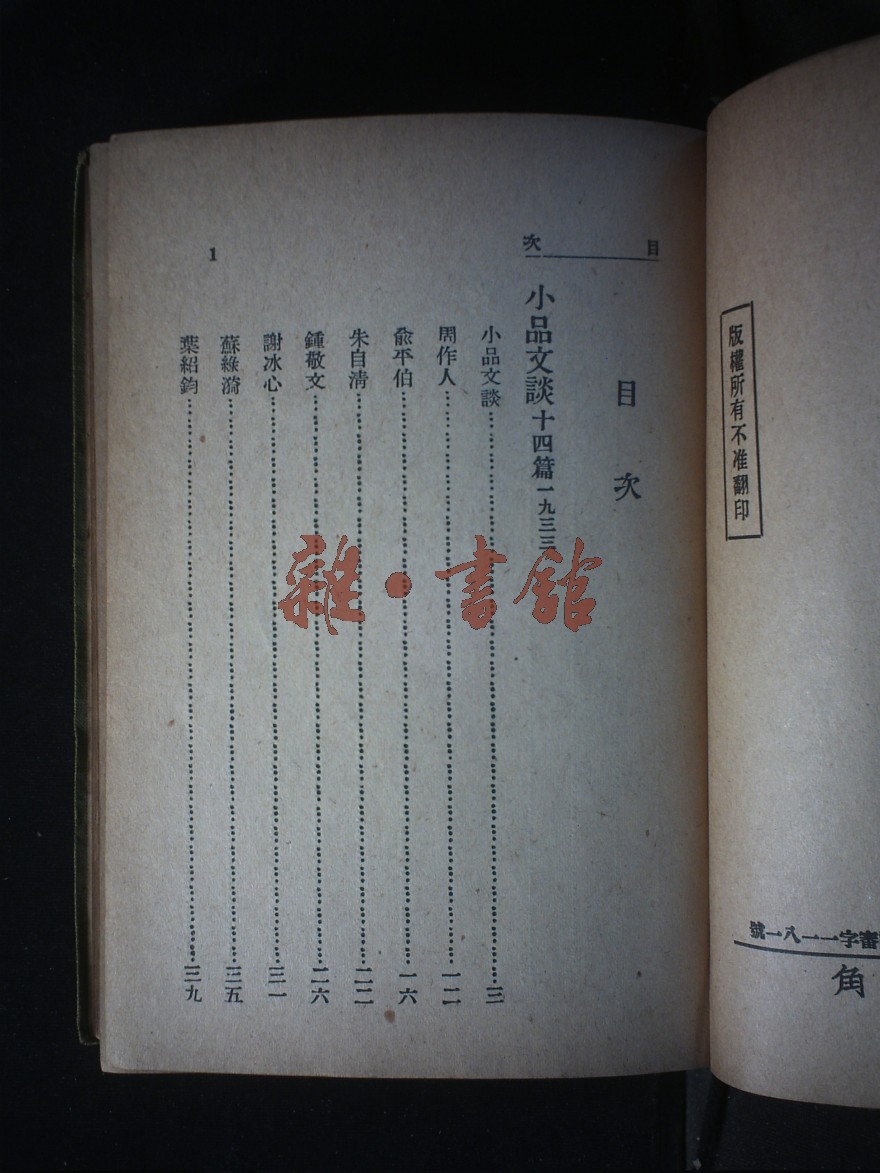 版權所有不准翻印
審字一一八一號
角
目次
目次
小品文談十四篇一九三三
小品文談三
周作人一二
兪平伯一六
朱自淸二二
鍾敬文二六
謝冰心三一
蘇綠漪三五
葉紹鈞三九
1
雜·書館